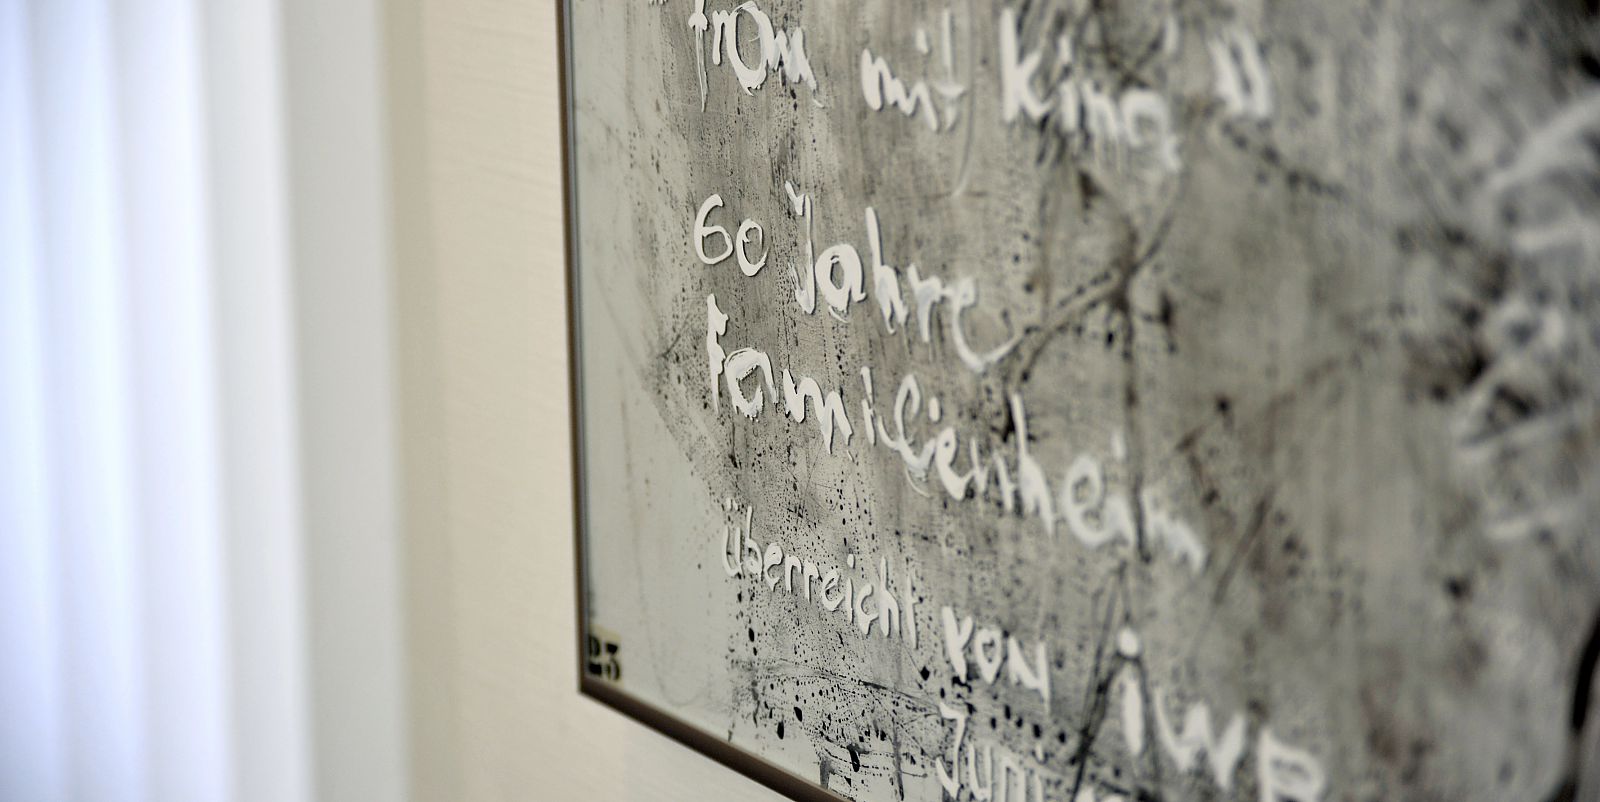 "frau mit kind"
60 Jahre
Familienheim
überreicht von iWB
Juni
23